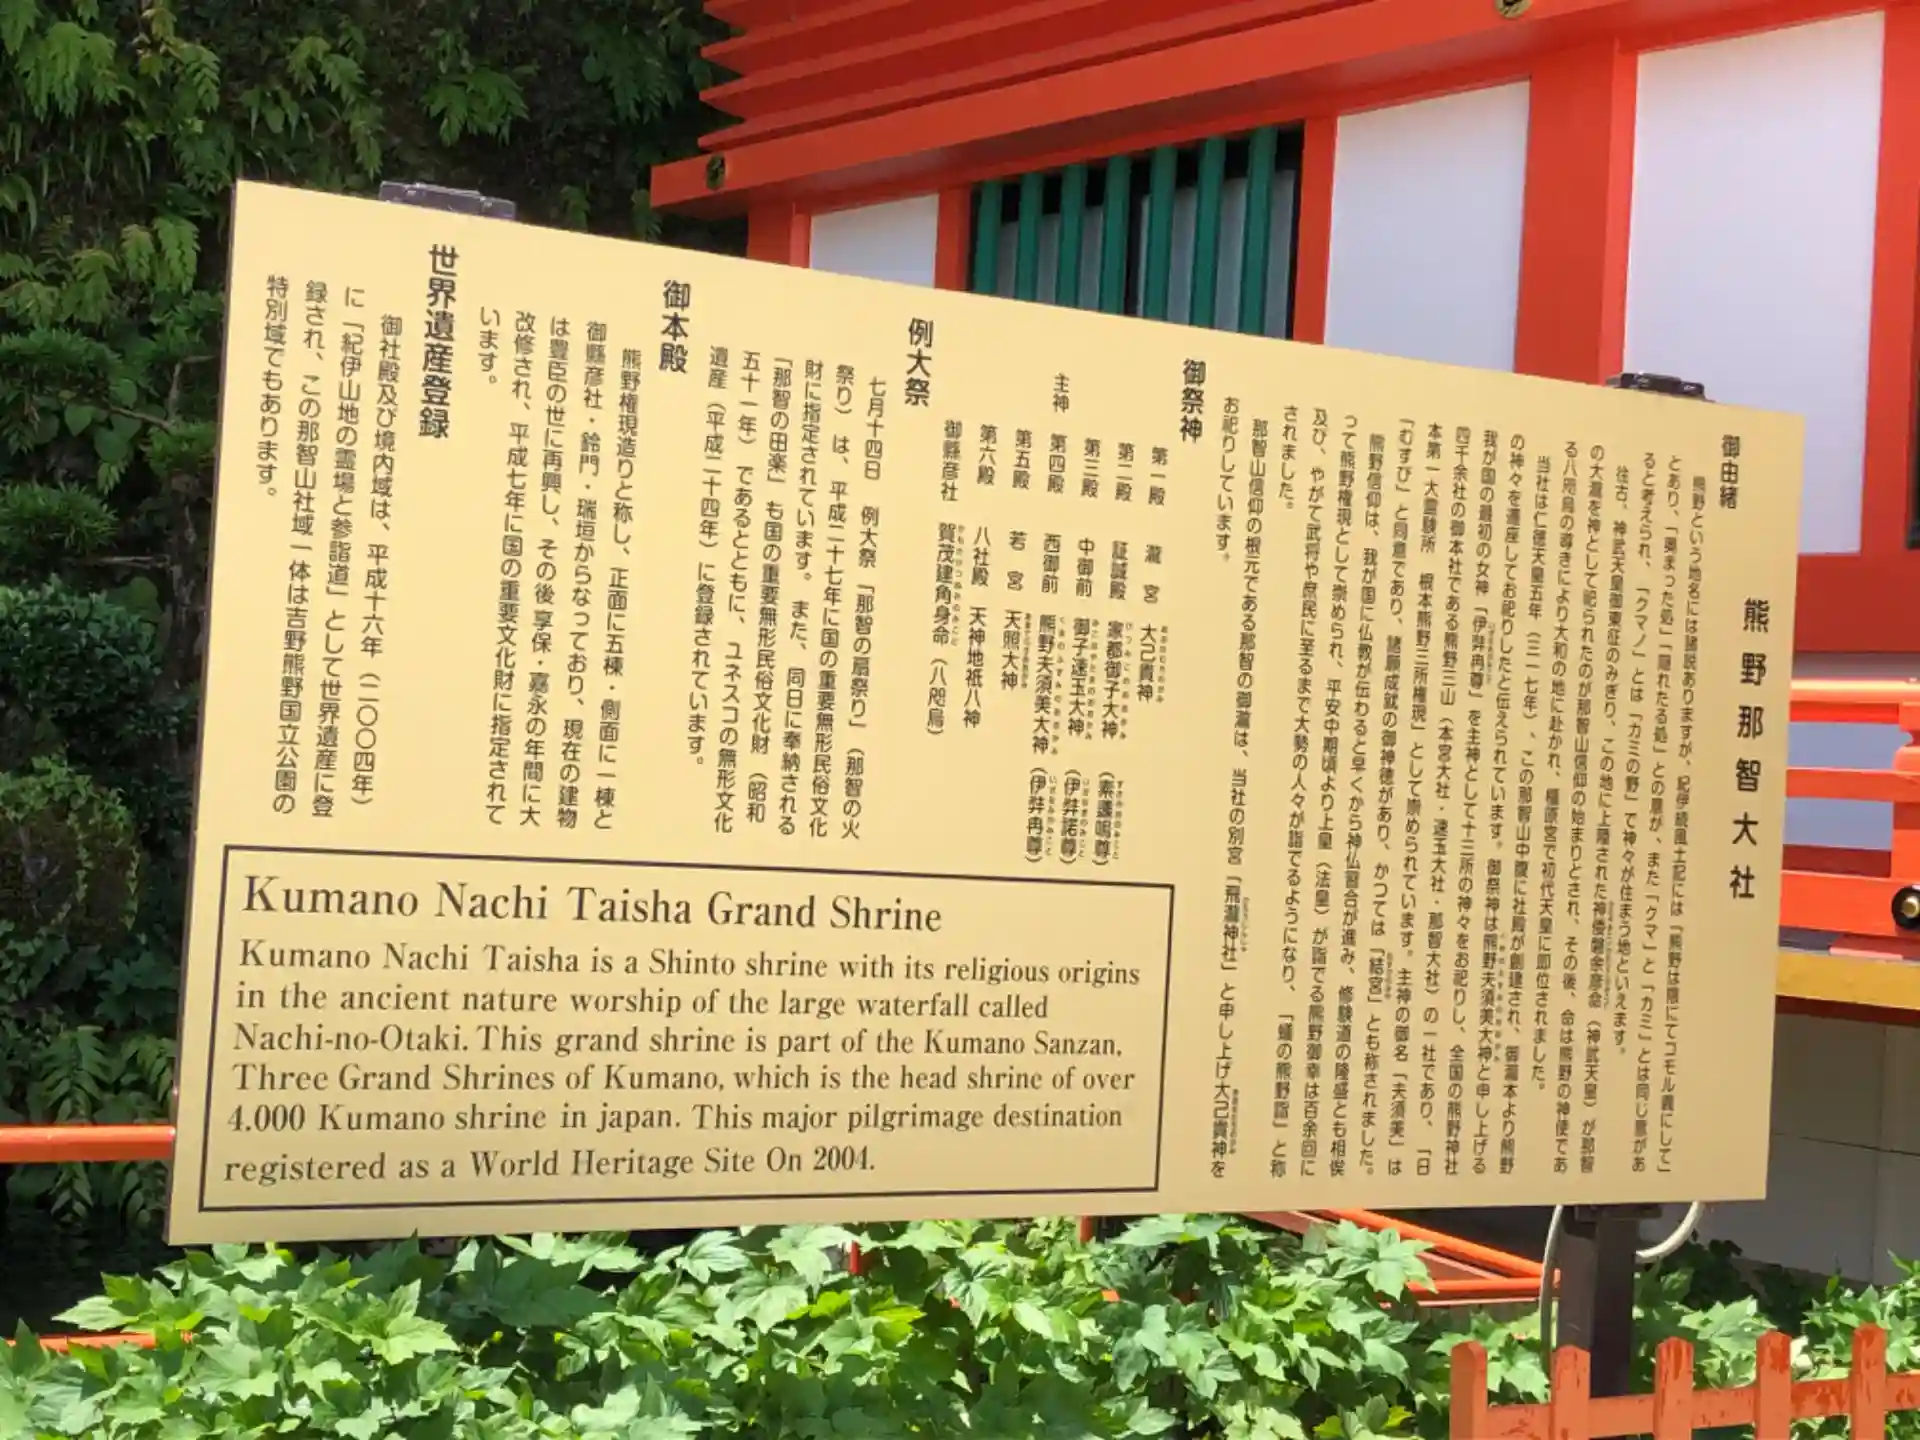 熊野那智大社
御由緒
熊野という地名には諸説ありますが、紀伊続風土記には「熊野は隈にてコモル義にして」
とあり、「奥まった処」「隠れたる処」との意が、また「クマ」と「カミ」とは同じ意があ
ると考えられ、「クマノ」とは「カミの野」で神々が住まう地といえます。
往古、神武天皇御東征のみぎり、この地に上陸された神倭磐余彦命（神武天皇）が那智
の大瀧を神として祀られたのが那智山信仰の始まりとされ、その後、命は熊野の神使であ
る八咫烏の導きにより大和の地に赴かれ、橿原宮で初代天皇に即位されました。
当社は仁徳天皇五年（三一七年）、この那智山中腹に社殿が創建され、御瀧本より熊野
の神々を遷座してお祀りしたと伝えられています。御祭神は熊野夫須美大神と申し上げる
我が国の最初の女神「伊弉冉尊」を主神として十三所の神々をお祀りし、全国の熊野神社
四千余社の御本社である熊野三山（本宮大社・速玉大社・那智大社）の一社であり、「日
本第一大霊験所　根本熊野三所権現」として崇められています。主神の御名「夫須美」は
「むすび」と同意であり、諸願成就の御神徳があり、かつては「結宮」とも称されました。
熊野信仰は、我が国に仏教が伝わると早くから神仏習合が進み、修験道の隆盛とも相俟
って熊野権現として崇められ、平安中期頃より上皇（法皇）が詣でる熊野御幸は百余回に
及び、やがて武将や庶民に至るまで大勢の人々が詣でるようになり、「蟻の熊野詣」と称
されました。
那智山信仰の根元である那智の御瀧は、当社の別宮「飛瀧神社」と申し上げ大己貴神を
お祀りしています。
御祭神
第一殿　瀧宮　大己貴神
第二殿　証誠殿　家都御子大神（素盞嗚尊）
第三殿　中御前　御子速玉大神（伊弉諾尊）
主神　第四殿　西御前　熊野夫須美大神（伊弉冉尊）
第五殿　若宮　天照大神
第六殿　八社殿　天神地祇八神
御縣彦社　賀茂建角身命（八咫烏）
例大祭
七月十四日　例大祭「那智の扇祭り」（那智の火
祭り）は、平成二十七年に国の重要無形民俗文化
財に指定されています。また、同日に奉納される
「那智の田楽」も国の重要無形民俗文化財（昭和
五十一年）であるとともに、ユネスコの無形文化
遺産（平成二十四年）に登録されています。
御本殿
熊野権現造りと称し、正面に五棟・側面に一棟と
御縣彦社・鈴門・瑞垣からなっており、現在の建物
は豊臣の世に再興し、その後享保・嘉永の年間に大
改修され、平成七年に国の重要文化財に指定されて
います。
世界遺産登録
御社殿及び境内域は、平成十六年（二〇〇四年）
に「紀伊山地の霊場と参詣道」として世界遺産に登
録され、この那智山社域一体は吉野熊野国立公園の
特別域でもあります。
Kumano Nachi Taisha Grand Shrine
Kumano Nachi Taisha is a Shinto shrine with its religious origins
in the ancient nature worship of the large waterfall called
Nachi-no-Otaki. This grand shrine is part of the Kumano Sanzan,
Three Grand Shrines of Kumano, which is the head shrine of over
4.000 Kumano shrine in japan. This major pilgrimage destination
registered as a World Heritage Site On 2004.